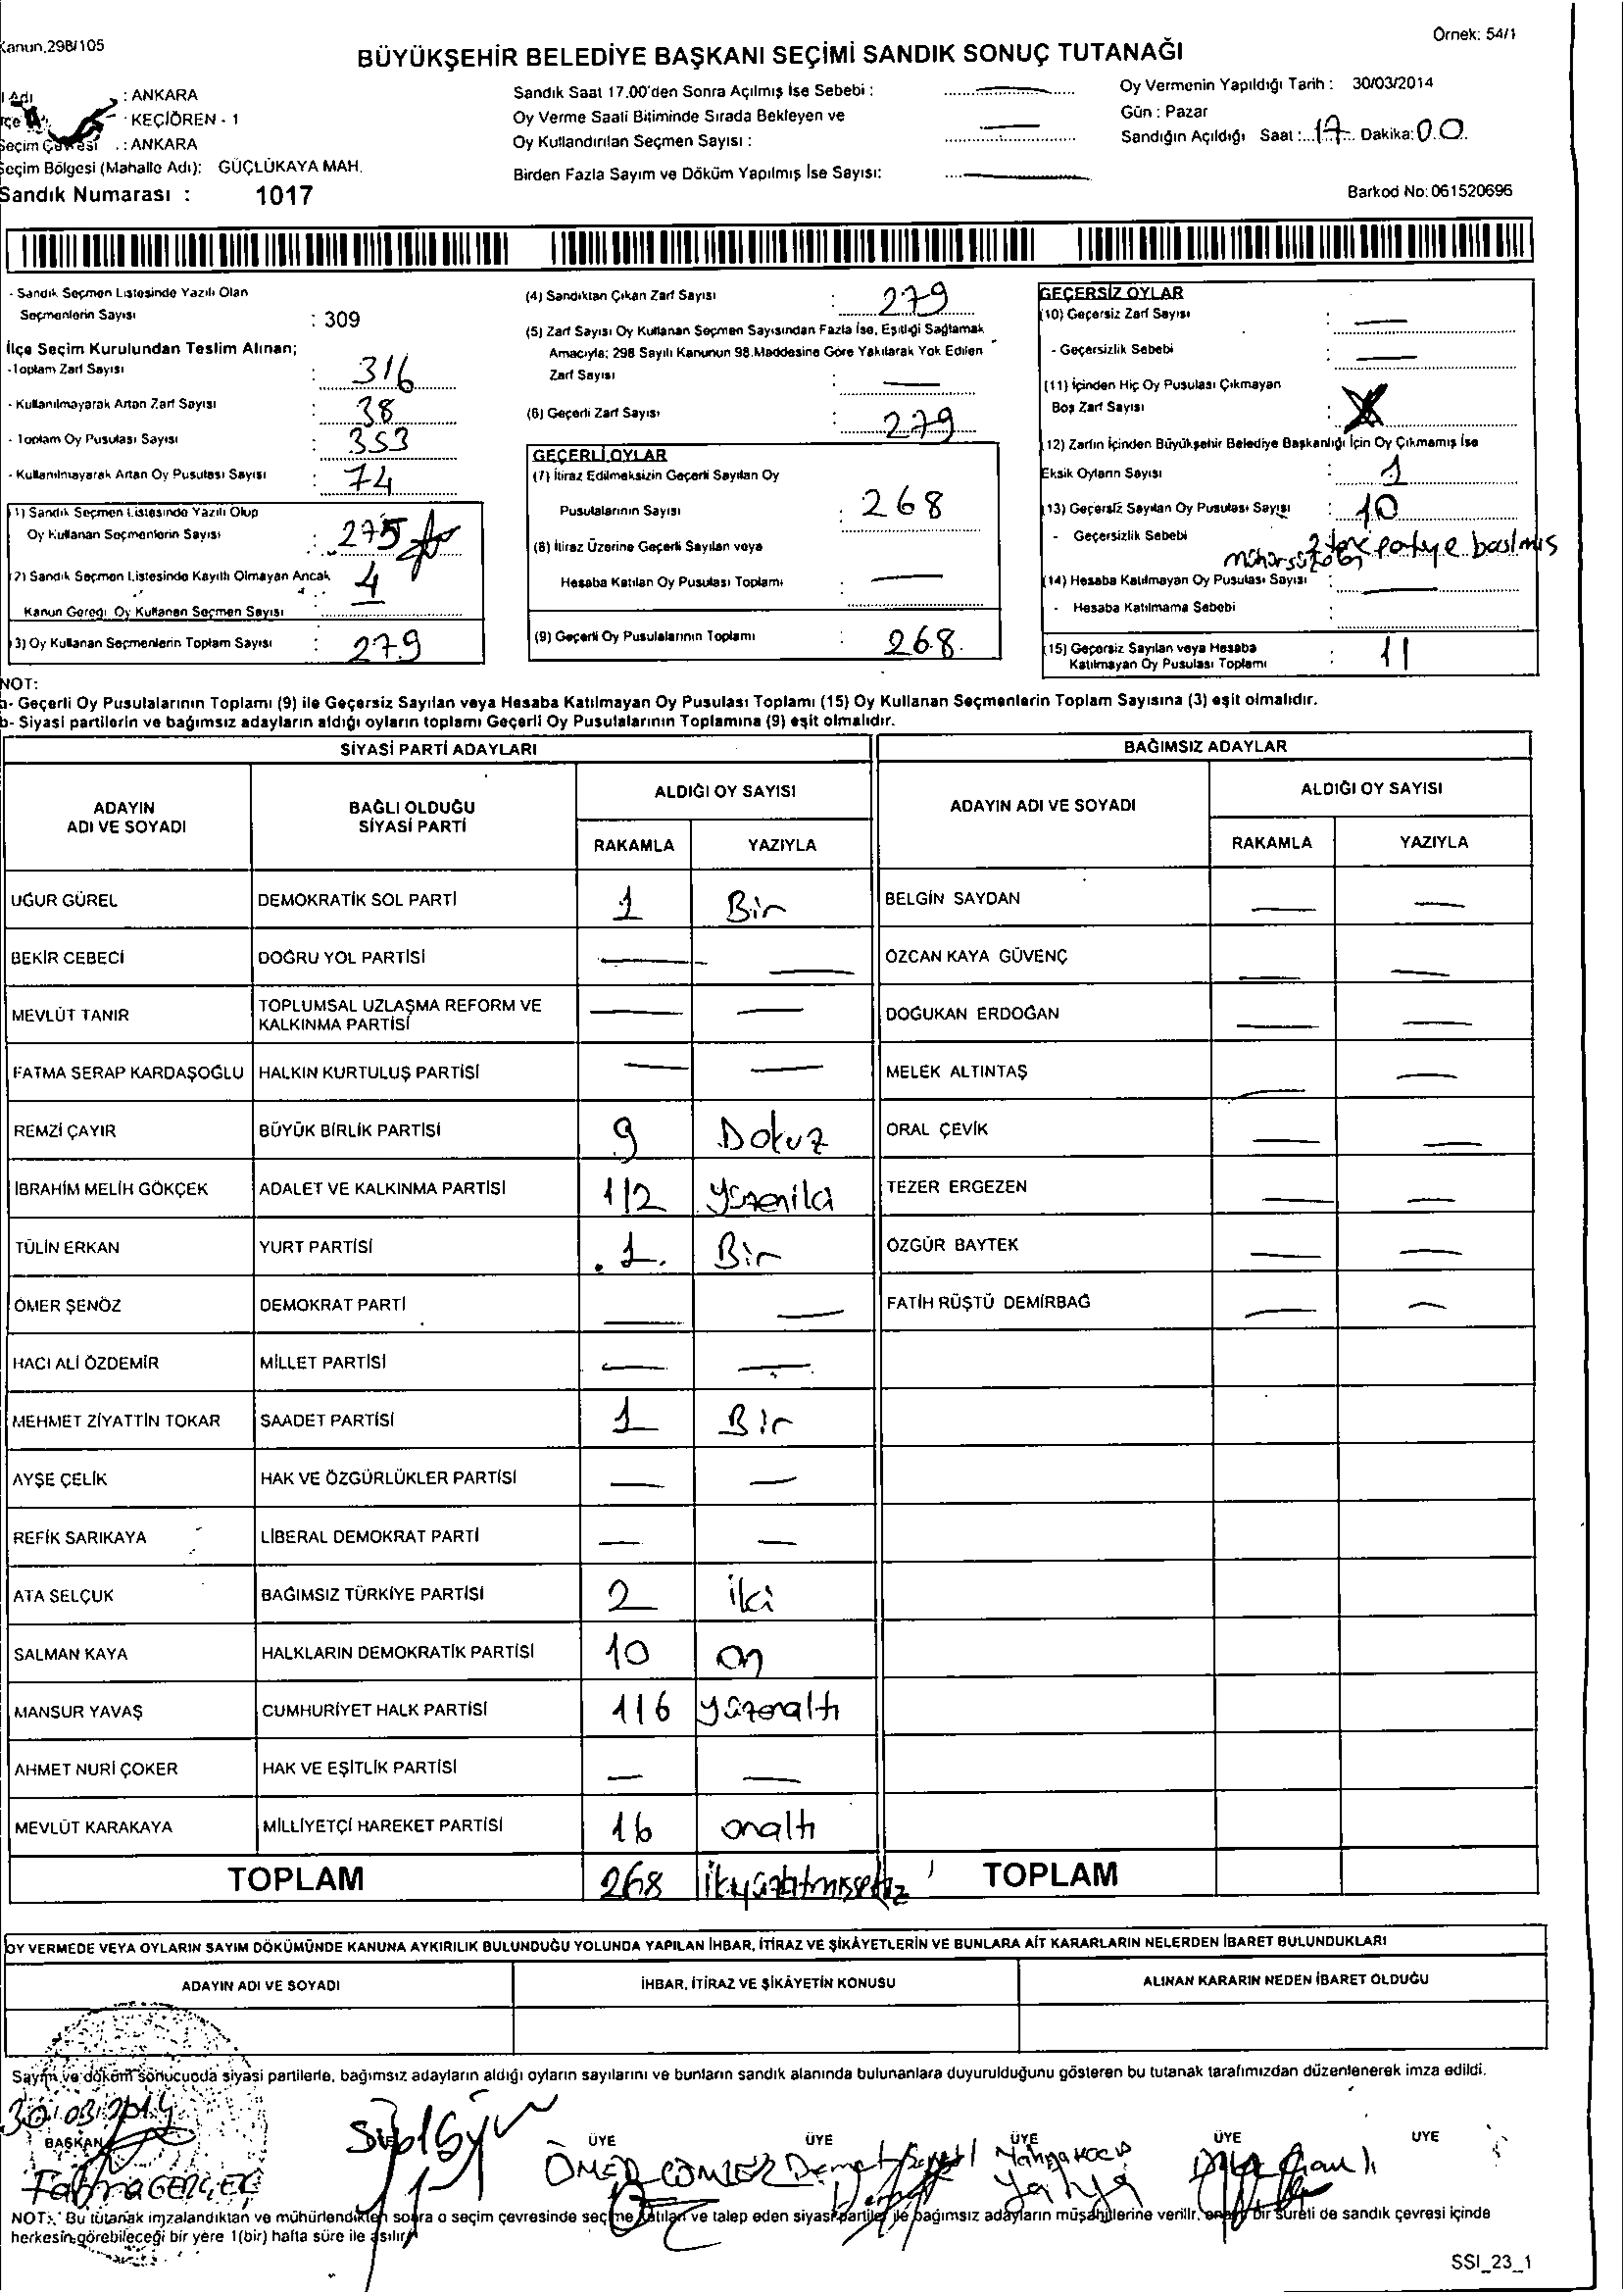 Kanun.298/105
Örnek: 54/1
BÜYÜKŞEHİR BELEDİYE BAŞKANI SEÇİMİ SANDIK SONUÇ TUTANAĞI
: ANKARA
: KEÇİÖREN - 1
: ANKARA
Seçim Bölgesi (Mahalle Adı): GÜÇLÜKAYA MAH.
Sandık Numarası : 1017
Sandık Saat 17.00'den Sonra Açılmış İse Sebebi :
Oy Verme Saati Bitiminde Sırada Bekleyen ve
Oy Kullandırılan Seçmen Sayısı :
Birden Fazla Sayım ve Döküm Yapılmış İse Sayısı:
Oy Vermenin Yapıldığı Tarih : 30/03/2014
Gün : Pazar
Sandığın Açıldığı Saat : 17 Dakika: 00
Barkod No: 061520696
- Sandık Seçmen Listesinde Yazılı Olan
Seçmenlerin Sayısı : 309
İlçe Seçim Kurulundan Teslim Alınan;
-Toplam Zarf Sayısı : 316
- Kullanılmayarak Artan Zarf Sayısı : 38
- Toplam Oy Pusulası Sayısı : 353
- Kullanılmayarak Artan Oy Pusulası Sayısı : 74
1) Sandık Seçmen Listesinde Yazılı Olup
Oy Kullanan Seçmenlerin Sayısı : 275
2) Sandık Seçmen Listesinde Kayıtlı Olmayan Ancak 4
Kanun Gereği Oy Kullanan Seçmen Sayısı
3) Oy Kullanan Seçmenlerin Toplam Sayısı : 279
(4) Sandıktan Çıkan Zarf Sayısı : 279
(5) Zarf Sayısı Oy Kullanan Seçmen Sayısından Fazla İse, Eşitliği Sağlamak
Amacıyla; 298 Sayılı Kanunun 98.Maddesine Göre Yakılarak Yok Edilen
Zarf Sayısı : —
(6) Geçerli Zarf Sayısı : 279
GEÇERLİ OYLAR
(7) İtiraz Edilmeksizin Geçerli Sayılan Oy
Pusulalarının Sayısı : 268
(8) İtiraz Üzerine Geçerli Sayılan veya
Hesaba Katılan Oy Pusulası Toplamı : —
(9) Geçerli Oy Pusulalarının Toplamı : 268
GEÇERSİZ OYLAR
(10) Geçersiz Zarf Sayısı : —
- Geçersizlik Sebebi : —
(11) İçinden Hiç Oy Pusulası Çıkmayan
Boş Zarf Sayısı :
12) Zarfın İçinden Büyükşehir Belediye Başkanlığı İçin Oy Çıkmamış İse
Eksik Oyların Sayısı : 1
13) Geçersiz Sayılan Oy Pusulası Sayısı : 10
- Geçersizlik Sebebi
(14) Hesaba Katılmayan Oy Pusulası Sayısı : —
- Hesaba Katılmama Sebebi :
15) Geçersiz Sayılan veya Hesaba
Katılmayan Oy Pusulası Toplamı : 11
NOT:
a- Geçerli Oy Pusulalarının Toplamı (9) ile Geçersiz Sayılan veya Hesaba Katılmayan Oy Pusulası Toplamı (15) Oy Kullanan Seçmenlerin Toplam Sayısına (3) eşit olmalıdır.
b- Siyasi partilerin ve bağımsız adayların aldığı oyların toplamı Geçerli Oy Pusulalarının Toplamına (9) eşit olmalıdır.
SİYASİ PARTİ ADAYLARI
BAĞIMSIZ ADAYLAR
ADAYIN
ADI VE SOYADI
BAĞLI OLDUĞU
SİYASİ PARTİ
ALDIĞI OY SAYISI
RAKAMLA YAZIYLA
ADAYIN ADI VE SOYADI
ALDIĞI OY SAYISI
RAKAMLA YAZIYLA
UĞUR GÜREL DEMOKRATİK SOL PARTİ 1 Bir BELGİN SAYDAN — —
BEKİR CEBECİ DOĞRU YOL PARTİSİ — — ÖZCAN KAYA GÜVENÇ — —
MEVLÜT TANIR TOPLUMSAL UZLAŞMA REFORM VE
KALKINMA PARTİSİ — — DOĞUKAN ERDOĞAN — —
FATMA SERAP KARDAŞOĞLU HALKIN KURTULUŞ PARTİSİ — — MELEK ALTINTAŞ — —
REMZİ ÇAYIR BÜYÜK BİRLİK PARTİSİ 9 Dokuz ORAL ÇEVİK — —
İBRAHİM MELİH GÖKÇEK ADALET VE KALKINMA PARTİSİ 112 yüzoniki TEZER ERGEZEN — —
TÜLİN ERKAN YURT PARTİSİ 1 Bir ÖZGÜR BAYTEK — —
ÖMER ŞENÖZ DEMOKRAT PARTİ — — FATİH RÜŞTÜ DEMİRBAĞ — —
HACI ALİ ÖZDEMİR MİLLET PARTİSİ — —
MEHMET ZİYATTİN TOKAR SAADET PARTİSİ 1 Bir
AYŞE ÇELİK HAK VE ÖZGÜRLÜKLER PARTİSİ — —
REFİK SARIKAYA LİBERAL DEMOKRAT PARTİ — —
ATA SELÇUK BAĞIMSIZ TÜRKİYE PARTİSİ 2 iki
SALMAN KAYA HALKLARIN DEMOKRATİK PARTİSİ 10 on
MANSUR YAVAŞ CUMHURİYET HALK PARTİSİ 116 yüzonaltı
AHMET NURİ ÇOKER HAK VE EŞİTLİK PARTİSİ — —
MEVLÜT KARAKAYA MİLLİYETÇİ HAREKET PARTİSİ 16 onaltı
TOPLAM 268 ikiyüzatmışsekiz TOPLAM
OY VERMEDE VEYA OYLARIN SAYIM DÖKÜMÜNDE KANUNA AYKIRILIK BULUNDUĞU YOLUNDA YAPILAN İHBAR, İTİRAZ VE ŞİKÂYETLERİN VE BUNLARA AİT KARARLARIN NELERDEN İBARET BULUNDUKLARI
ADAYIN ADI VE SOYADI İHBAR, İTİRAZ VE ŞİKÂYETİN KONUSU ALINAN KARARIN NEDEN İBARET OLDUĞU
Sayım ve döküm sonucunda siyasi partilerle, bağımsız adayların aldığı oyların sayılarını ve bunların sandık alanında bulunanlara duyurulduğunu gösteren bu tutanak tarafımızdan düzenlenerek imza edildi.
30.03.2014
BAŞKAN ÜYE ÜYE ÜYE ÜYE ÜYE
NOT: Bu tutanak imzalandıktan ve mühürlendikten sonra o seçim çevresinde seçime katılan ve talep eden siyasi partiler ile bağımsız adayların müşahitlerine verilir, bir sureti de sandık çevresi içinde
herkesin görebileceği bir yere 1(bir) hafta süre ile asılır.
SSI_23_1